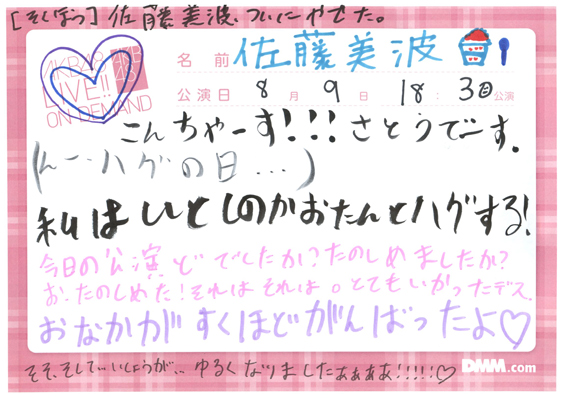 [そくほう] 佐藤美波、ついにやせた。
AKB48 LIVE!! ON DEMAND
名前 佐藤美波
公演日 8月9日 18:30公演
こんちゃーす!!!さとうでーす。
(んー、ハグの日...)
私はいとしのかおたんとハグする!
今日の公演、どでしたか?たのしめましたか?
お、たのしめた!それはそれは。とてもいがったデス。
おなかがすくほどがんばったよ♡
そそ、そして...いしょうが...ゆるくなりましたぁぁぁぁ!!!!!♡
DMM.com